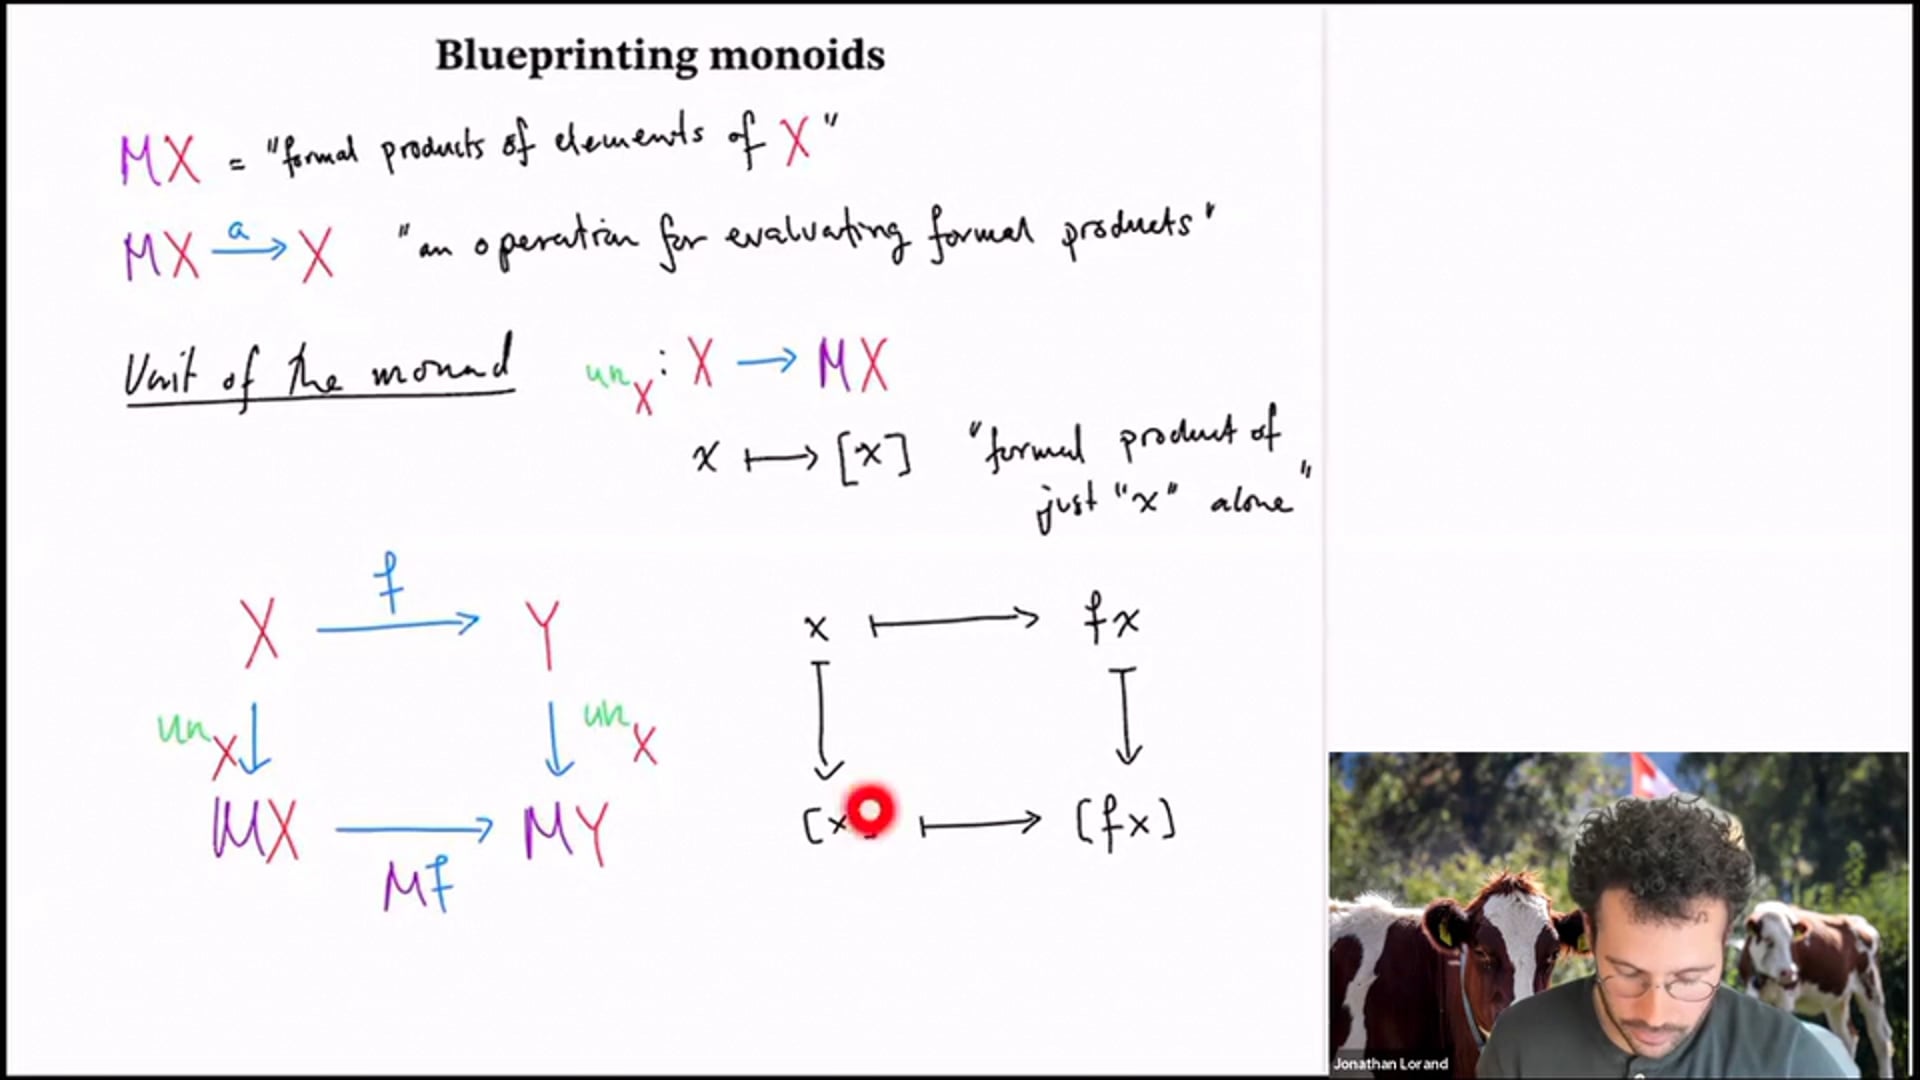 Blueprinting monoids
MX = "formal products of elements of X"
MX a→ X "an operation for evaluating formal products"
Unit of the monad
un_X : X → MX
x ↦ [x] "formal product of
just "x" alone"
X f→ Y
x ↦ fx
un_X ↓ ↓ un_X
MX → MY
Mf
[x] ↦ [fx]
Jonathan Lorand